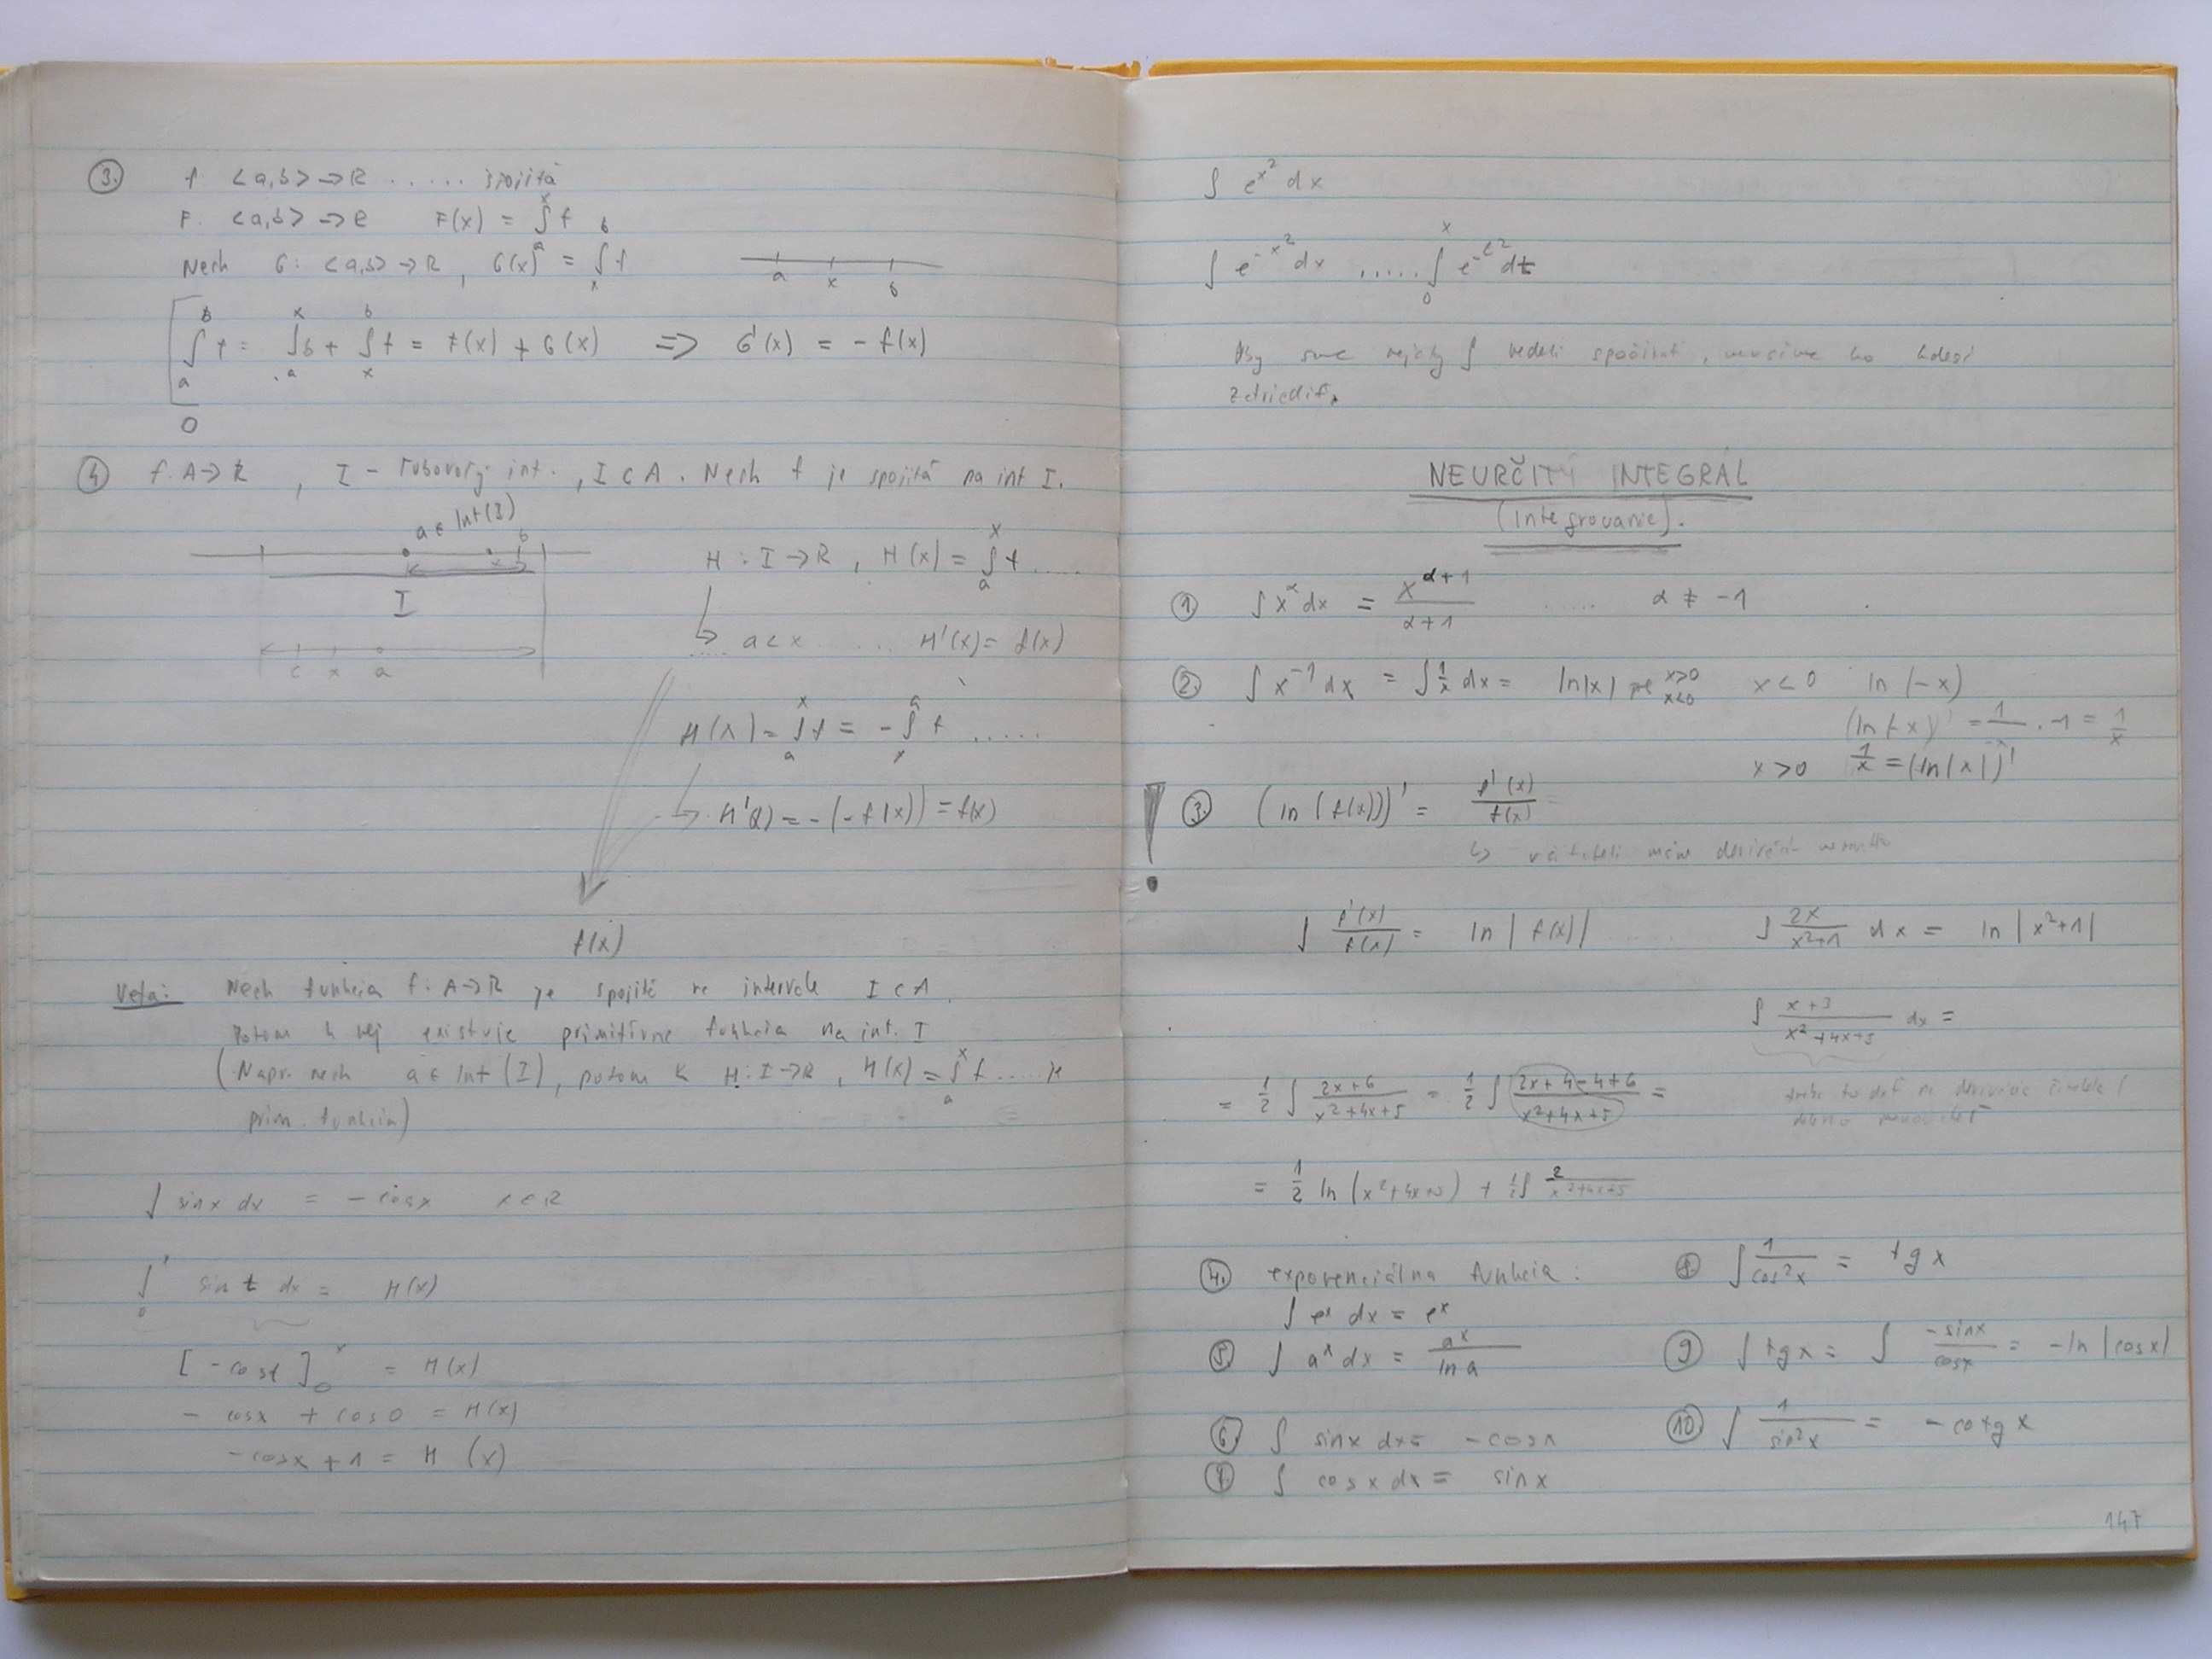 ③ f: <a,b> → R ..... spojitá
F: <a,b> → R F(x) = ∫ₐˣ f
Nech G: <a,b> → R, G(x) = ∫ₓᵇ f
a x b
∫ₐᵇ f = ∫ₐˣ f + ∫ₓᵇ f = F(x) + G(x) => G'(x) = - f(x)
0
④ f: A → R, I - ľubovoľý int., I ⊂ A. Nech f je spojitá na int I.
a ∈ Int(I)
x b
I
H : I → R, H(x) = ∫ₐˣ f .....
a < x ..... H'(x) = f(x)
c x a
H(x) = ∫ₐˣ f = - ∫ₓᵃ f .....
H'(x) = - (-f(x)) = f(x)
f(x)
Veta: Nech funkcia f: A → R je spojitá na intervale I ⊂ A.
Potom k nej existuje primitívna funkcia na int. I
(Napr. nech a ∈ Int(I), potom k H: I → R, H(x) = ∫ₐˣ f ..... je
prim. funkcia)
∫ sinx dx = - cosx x ∈ R
∫₀ˣ sin t dx = H(x)
[- cos t]₀ˣ = H(x)
- cosx + cos 0 = H(x)
- cosx + 1 = H(x)
∫ e^{x²} dx
∫ e^{-x²} dx ..... ∫₀ˣ e^{-t²} dt
Aby sme nejaký ∫ vedeli spočítať, musíme ho kdesi
zderiediť.
NEURČITÝ INTEGRÁL
(Integrovanie).
① ∫ x^α dx = x^{α+1}/(α+1) ..... α ≠ -1
② ∫ x⁻¹ dx = ∫ 1/x dx = ln|x| pre x>0 x<0 x < 0 ln(-x)
(ln(-x))' = 1/-x . -1 = 1/x
x > 0 1/x = (ln|x|)'
! ③ (ln(f(x)))' = f'(x)/f(x) =
↳ v čitateli máme deriváciu
∫ f'(x)/f(x) = ln|f(x)| ..... ∫ 2x/(x²+1) dx = ln|x²+1|
∫ (x+3)/(x²+4x+5) dx =
= 1/2 ∫ (2x+6)/(x²+4x+5) = 1/2 ∫ (2x+4-4+6)/(x²+4x+5) =
treba to dať na
= 1/2 ln(x²+4x+5) + 1/2 ∫ 2/(x²+4x+5)
④ exponenciálna funkcia:
∫ eˣ dx = eˣ
⑤ ∫ aˣ dx = aˣ/ln a
⑥ ∫ sinx dx = - cosx
⑦ ∫ cosx dx = sinx
⑧ ∫ 1/cos²x = tgx
⑨ ∫ tgx = ∫ -sinx/cosx = -ln|cosx|
⑩ ∫ 1/sin²x = - cotgx
147